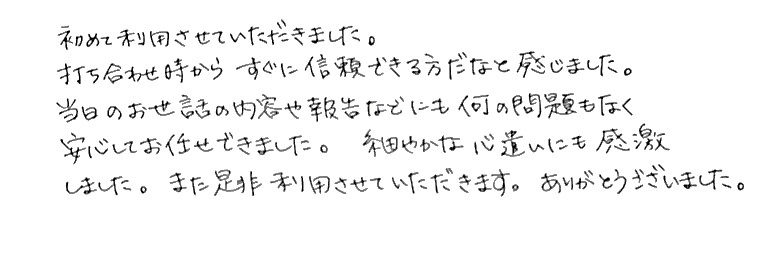 初めて利用させていただきました。
打ち合わせ時から すぐに信頼できる方だなと感じました。
当日のお世話の内容や報告などにも何の問題もなく
安心してお任せできました。 細やかな心遣いにも感激
しました。また是非利用させていただきます。ありがとうございました。